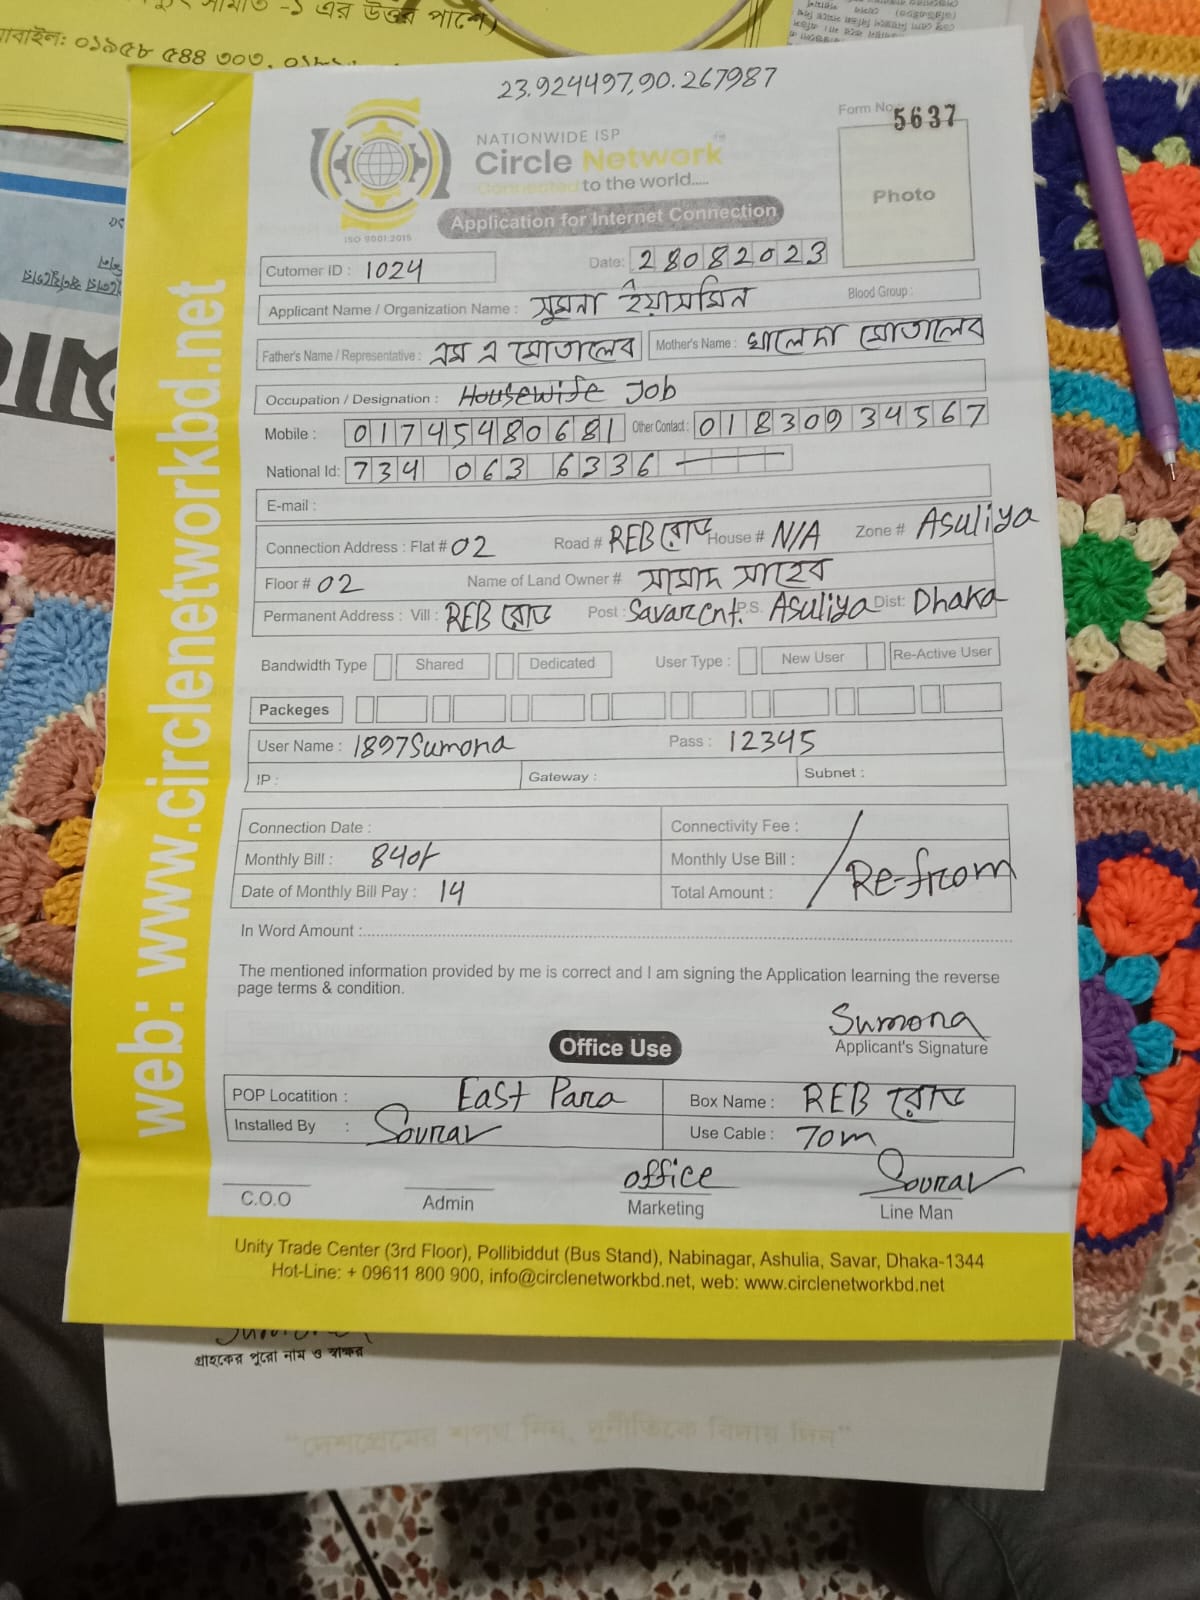 -১ এর উত্তর পাশে)
মোবাইল: ০১৯৫৮ ৫৪৪ ৩০৩,
23.924497,90.267987
Form No: 5637
NATIONWIDE ISP
Circle Network
Connected to the world.....
ISO 9001:2015
Photo
Application for Internet Connection
Cutomer ID : 1024 Date: 28082023
Applicant Name / Organization Name : সুমনা ইয়াসমিন Blood Group :
Father's Name / Representative : এম এ মোতালেব Mother's Name : খালেদা মোতালেব
Occupation / Designation : Housewife Job
Mobile : 01745480681 Other Contact : 01830934567
National Id: 734 063 6336
E-mail :
Connection Address : Flat # 02 Road # REB রোড House # N/A Zone # Asuliya
Floor # 02 Name of Land Owner # সামাদ সাহেব
Permanent Address : Vill : REB রোড Post : Savar Cnt. P.S. Asuliya Dist: Dhaka
Bandwidth Type Shared Dedicated User Type : New User Re-Active User
Packeges
User Name : 1897Sumona Pass : 12345
IP : Gateway : Subnet :
Connection Date : Connectivity Fee :
Monthly Bill : 840/- Monthly Use Bill :
Re-from
Date of Monthly Bill Pay : 14 Total Amount :
In Word Amount :
The mentioned information provided by me is correct and I am signing the Application learning the reverse
page terms & condition.
Sumona
Applicant's Signature
Office Use
POP Locatition : East Para Box Name : REB রোড
Installed By : Sourav Use Cable : 70m
office Sourav
C.O.O Admin Marketing Line Man
Unity Trade Center (3rd Floor), Pollibiddut (Bus Stand), Nabinagar, Ashulia, Savar, Dhaka-1344
Hot-Line: + 09611 800 900, info@circlenetworkbd.net, web: www.circlenetworkbd.net
web: www.circlenetworkbd.net
গ্রাহকের পুরো নাম ও স্বাক্ষর
"দেশপ্রেমের শপথ নিন, দুর্নীতিকে বিদায় দিন"